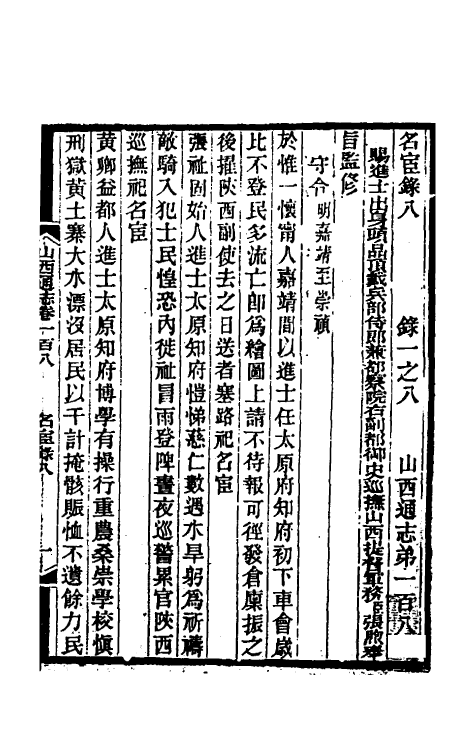 名宦錄八　錄一之八　山西通志弟一百八
賜進士出身頭品頂戴兵部侍郎兼都察院右副都御史巡撫山西提督軍務臣張煦奉
旨監修
守令　明嘉靖至崇禎
於惟一懷甯人嘉靖間以進士任太原府知府初下車會歲
比不登民多流亡卽爲繪圖上請不待報可徑發倉廩振之
後擢陝西副使去之日送者塞路祀名宦
張祉固始人進士太原知府愷悌慈仁數遇水旱躬爲祈禱
敵騎入犯士民惶恐內徙祉冒雨登陴晝夜巡警累官陝西
巡撫祀名宦
黄卿益都人進士太原知府博學有操行重農桑崇學校愼
刑獄黄土寨大水漂沒居民以千計掩骸賑恤不遺餘力民
山西通志卷一百八　名宦錄八　一